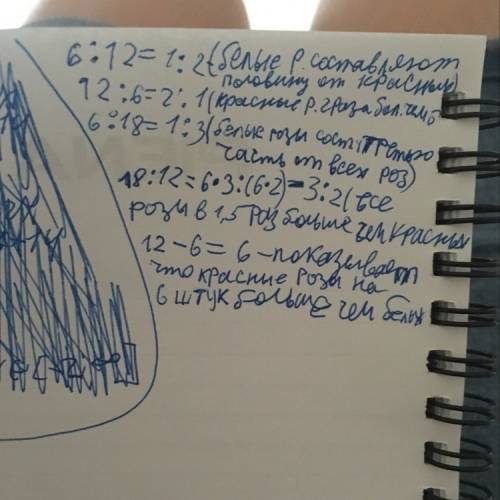 6:12=1:2(белые р. составляют
половину от красных)
12:6=2:1(красные р. 2 раза бол. чем б
6:18=1:3(белые розы сост. третью
часть от всех роз)
18:12=6·3:(6·2)=3:2(все
розы в 1,5 раз больше чем красных
12-6=6-показывает
что красные розы на
6 штук больше чем белых